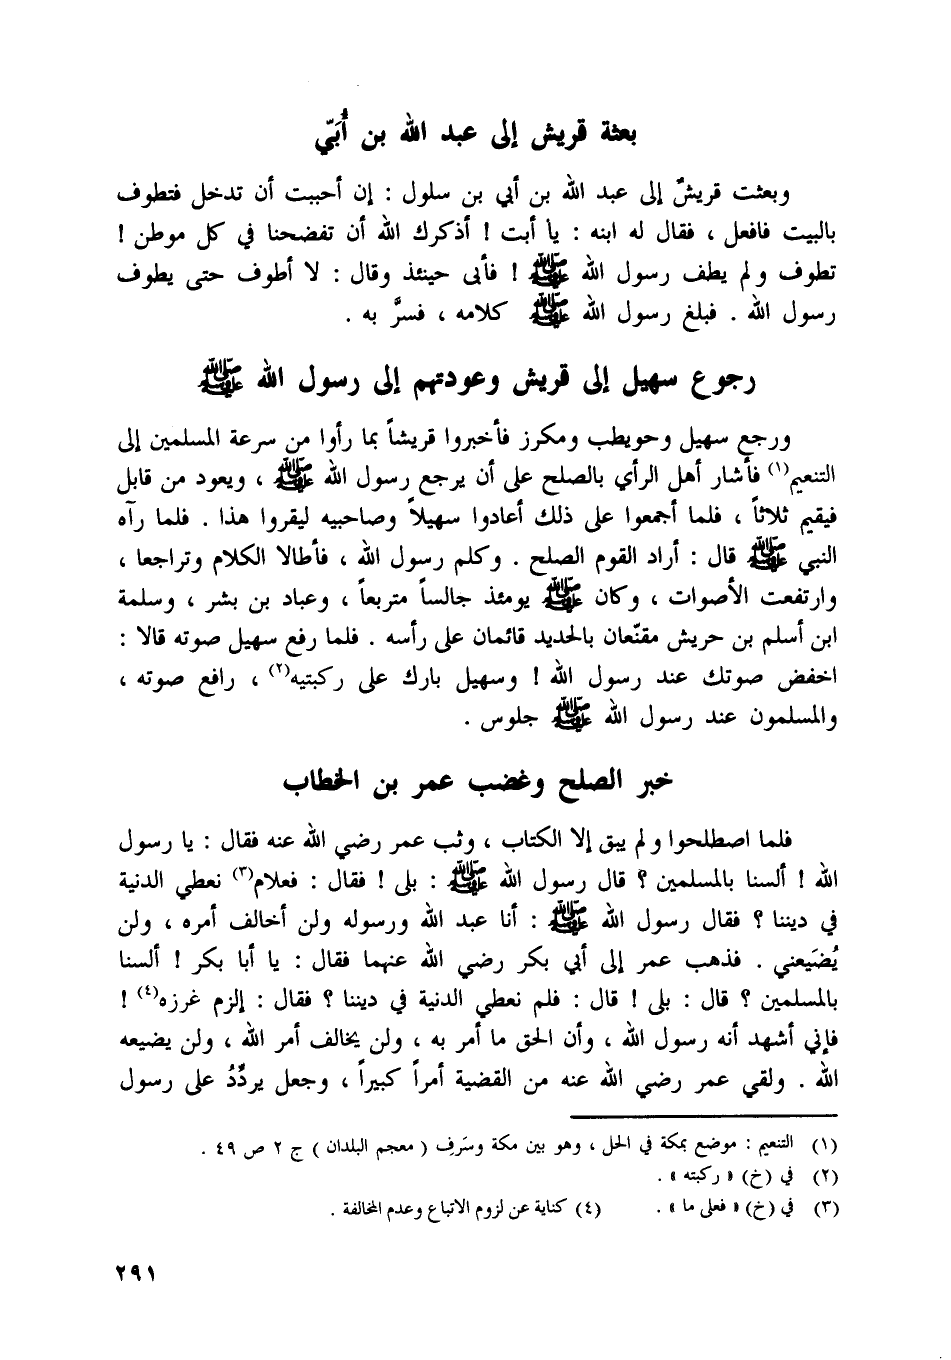 بعثة قريش إلى عبد الله بن أُبَيّ
وبعثت قريشٌ إلى عبد الله بن أبي بن سلول : إن أحببت أن تدخل فتطوف
بالبيت فافعل ، فقال له ابنه : يا أبت ! أذكرك الله أن تفضحنا في كل موطن !
تطوف ولم يطف رسول الله ﷺ ! فأبى حينئذ وقال : لا أطوف حتى يطوف
رسول الله . فبلغ رسول الله ﷺ كلامه ، فسرَّ به .
رجوع سهيل إلى قريش وعودتهم إلى رسول الله ﷺ
ورجع سهيل وحويطب ومكرز فأخبروا قريشاً بما رأوا من سرعة المسلمين إلى
التنعيم(١) فأشار أهل الرأي بالصلح على أن يرجع رسول الله ﷺ ، ويعود من قابل
فيقيم ثلاثاً ، فلما أجمعوا على ذلك أعادوا سهيلاً وصاحبيه ليقروا هذا . فلما رآه
النبي ﷺ قال : أراد القوم الصلح . وكلم رسول الله ، فأطالا الكلام وتراجعا ،
وارتفعت الأصوات ، وكان ﷺ يومئذ جالساً متربعاً ، وعباد بن بشر ، وسلمة
ابن أسلم بن حريش مقنّعان بالحديد قائمان على رأسه . فلما رفع سهيل صوته قالا :
اخفض صوتك عند رسول الله ! وسهيل بارك على ركبتيه(٢) ، رافع صوته ،
والمسلمون عند رسول الله ﷺ جلوس .
خبر الصلح وغضب عمر بن الخطاب
فلما اصطلحوا ولم يبق إلا الكتاب ، وثب عمر رضي الله عنه فقال : يا رسول
الله ! ألسنا بالمسلمين ؟ قال رسول الله ﷺ : بلى ! فقال : فعلام(٣) نعطي الدنية
في ديننا ؟ فقال رسول الله ﷺ : أنا عبد الله ورسوله ولن أخالف أمره ، ولن
يُضَيعني . فذهب عمر إلى أبي بكر رضي الله عنهما فقال : يا أبا بكر ! ألسنا
بالمسلمين ؟ قال : بلى ! قال : فلم نعطي الدنية في ديننا ؟ فقال : إلزم غرزه(٤) !
فإني أشهد أنه رسول الله ، وأن الحق ما أمر به ، ولن يخالف أمر الله ، ولن يضيعه
الله . ولقي عمر رضي الله عنه من القضية أمراً كبيراً ، وجعل يردِّدُ على رسول
(١) التنعيم : موضع بمكة في الحل ، وهو بين مكة وسَرِف ( معجم البلدان ) ج ٢ ص ٤٩ .
(٢) في (خ) « ركبته » .
(٣) في (خ) « فعلى ما » . (٤) كناية عن لزوم الاتباع وعدم المخالفة .
٢٩١